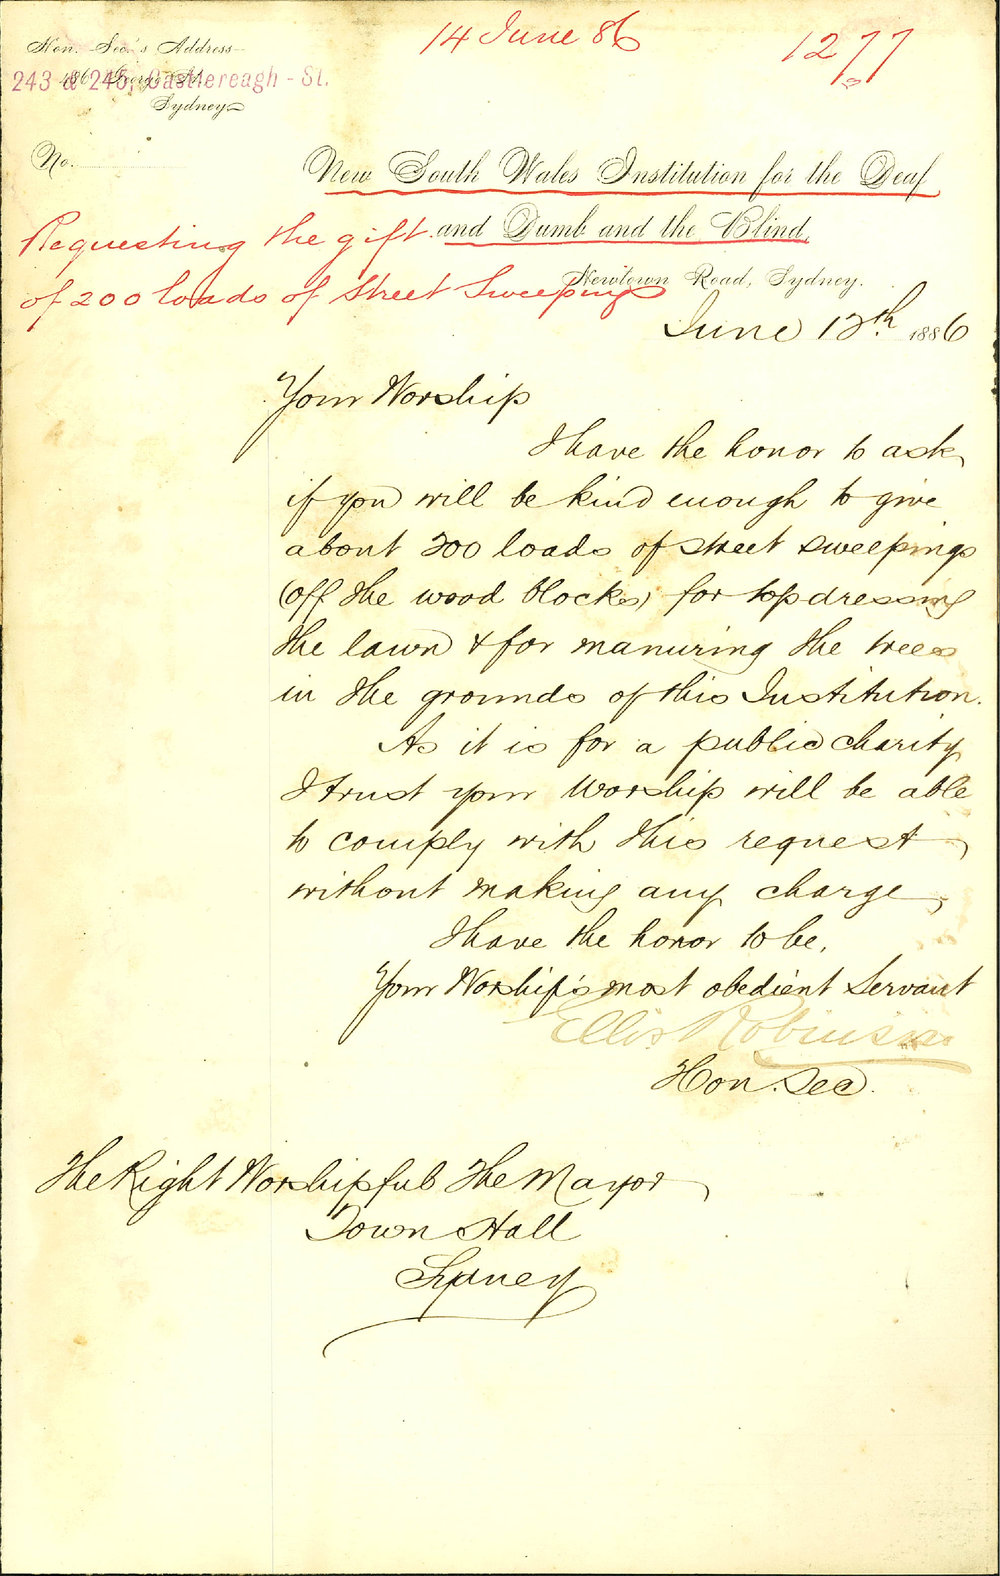 14 June 86
1277
Hon. Sec's Address
243 & 245, Castlereagh - St.
Sydney
No.
New South Wales Institution for the Deaf
and Dumb and the Blind,
Newtown Road, Sydney.
Requesting the gift
of 200 loads of Street Sweepings
June 12th 1886
Your Worship
I have the honor to ask
if you will be kind enough to give
about 200 loads of street sweepings
(off the wood blocks) for topdressing
the lawn & for manuring the trees
in the grounds of this Institution.
As it is for a public charity
I trust your Worship will be able
to comply with this request
without making any charge,
I have the honor to be,
Your Worship's most obedient Servant
Ellis Robinson
Hon. Sec.
The Right Worshipful The Mayor
Town Hall
Sydney